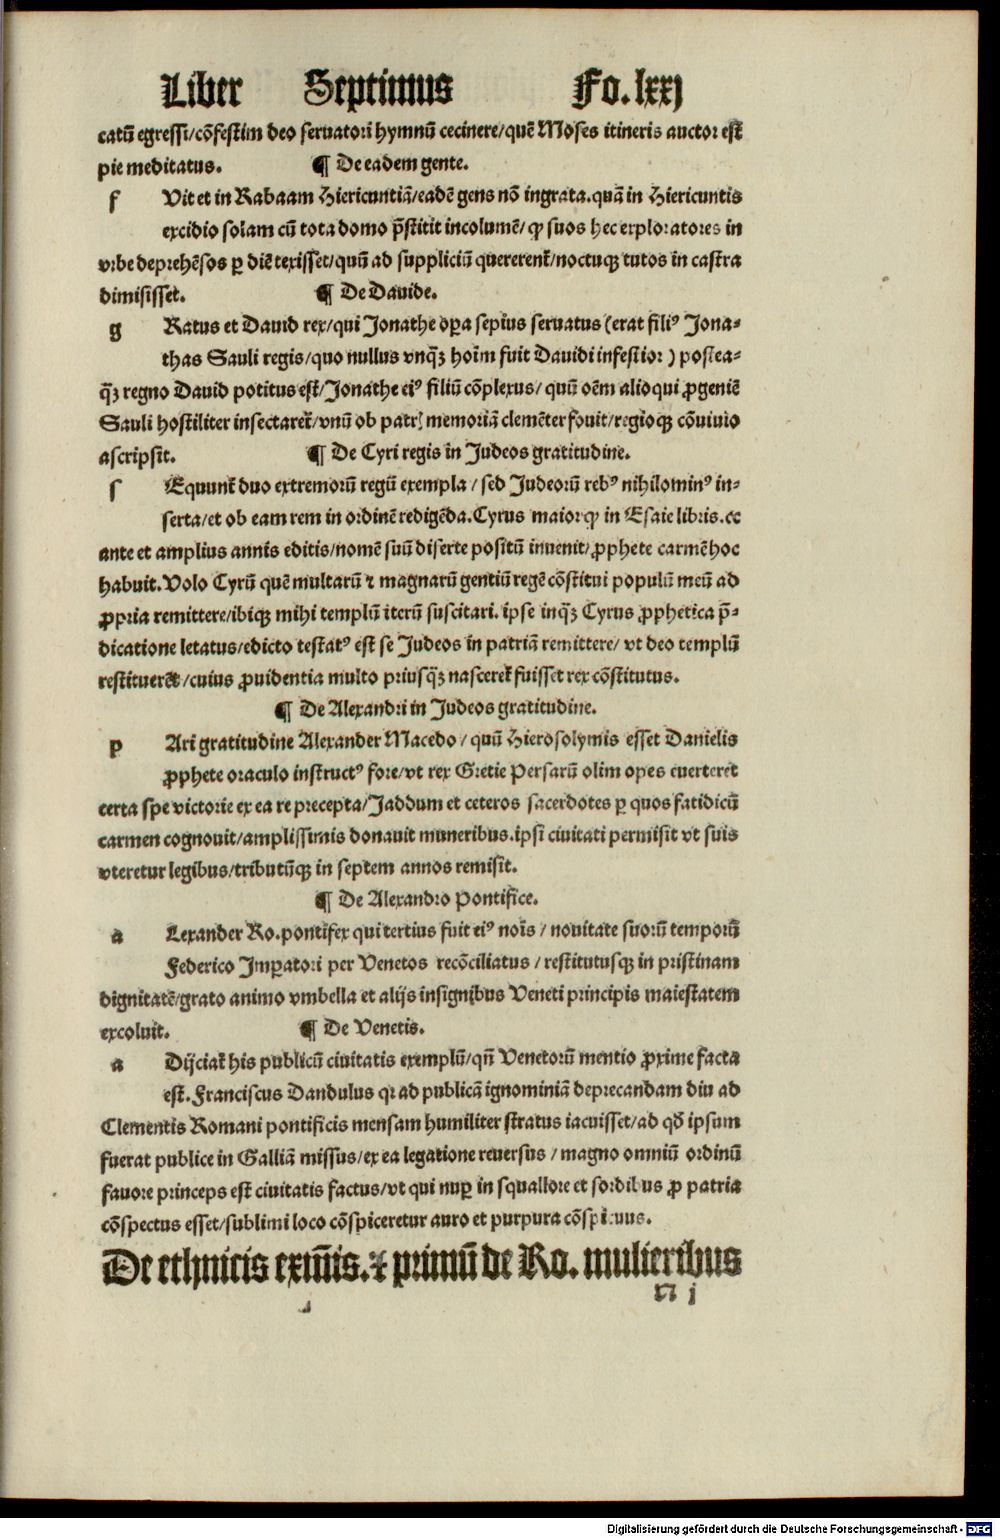 Liber Septimus Fo. lxxj
catū egressi/cōfestim deo seruatori hymnū cecinere/quē Moses itineris auctor est
pie meditatus. ¶ De eadem gente.
f Vit et in Rabaam Hiericuntiā/eadē gens nō ingrata.quā in Hiericuntis
excidio solam cū tota domo p̄stitit incolumē/ꝙ suos hec exploratores in
vrbe deprehēsos ꝑ diē texisset/quū ad suppliciū quererent̄/noctuqꝫ tutos in castra
dimisisset. ¶ De Dauide.
g Ratus et Dauid rex/qui Jonathe oꝑa sepius seruatus (erat filiꝰ Jona-
thas Sauli regis/quo nullus vnqꝫ̄ hoīm fuit Dauidi infestior) postea-
qꝫ̄ regno Dauid potitus est/Jonathe eiꝰ filiū cōplexus/quū oēm alioqui ꝓgeniē
Sauli hostiliter insectaret̄/vnū ob patrꝭ memoriā clemēter fouit/regioqꝫ cōuiuio
ascripsit. ¶ De Cyri regis in Judeos gratitudine.
s Equunt̄ duo extremorū regū exempla/sed Judeorū rebꝰ nihilominꝰ in-
serta/et ob eam rem in ordinē redigēda.Cyrus maiorqꝫ in Esaie libris.cc
ante et amplius annis editis/nomē suū diserte positū inuenit/ꝓphete carmē hoc
habuit.Volo Cyrū quē multarū ⁊ magnarū gentiū regē cōstitui populū meū ad
ꝓpria remittere/ibiqꝫ mihi templū iterū suscitari.ipse inqꝫ̄ Cyrus ꝓphetica p̄-
dicatione letatus/edicto testatꝰ est se Judeos in patriā remittere/vt deo templū
restituerēt/cuius ꝓuidentia multo priusqꝫ̄ nasceret̄ fuisset rex cōstitutus.
¶ De Alexandri in Judeos gratitudine.
p Ari gratitudine Alexander Macedo/quū Hierosolymis esset Danielis
ꝓphete oraculo instructꝰ fore/vt rex Gretie Persarū olim opes euerteret
certa spe victorie ex ea re precepta/Jaddum et ceteros sacerdotes ꝑ quos fatidicū
carmen cognouit/amplissimis donauit muneribus.ipsi ciuitati permisit vt suis
vteretur legibus/tributūqꝫ in septem annos remisit.
¶ De Alexandro Pontifice.
a Lexander Ro.pontifex qui tertius fuit eiꝰ noīs/nouitate suorū temporū
Federico Imꝑatori per Venetos recōciliatus/restitutusqꝫ in pristinam
dignitatē/grato animo vmbella et alijs insignibus Veneti principis maiestatem
excoluit. ¶ De Venetis.
a Dijciat̄ his publicū ciuitatis exemplū/qn̄ Venetorū mentio ꝓxime facta
est.Franciscus Dandulus qꝛ ad publicā ignominiā deprecandam diu ad
Clementis Romani pontificis mensam humiliter stratus iacuisset/ad qđ ipsum
fuerat publice in Galliā missus/ex ea legatione reuersus/magno omniū ordinū
fauore princeps est ciuitatis factus/vt qui nuꝑ in squallore et sordibus ꝓ patria
cōspectus esset/sublimi loco cōspiceretur auro et purpura cōspicuus.
De ethnicis eximijs.⁊ primū de Ro. mulieribus
n j
Digitalisierung gefördert durch die Deutsche Forschungsgemeinschaft - DFG